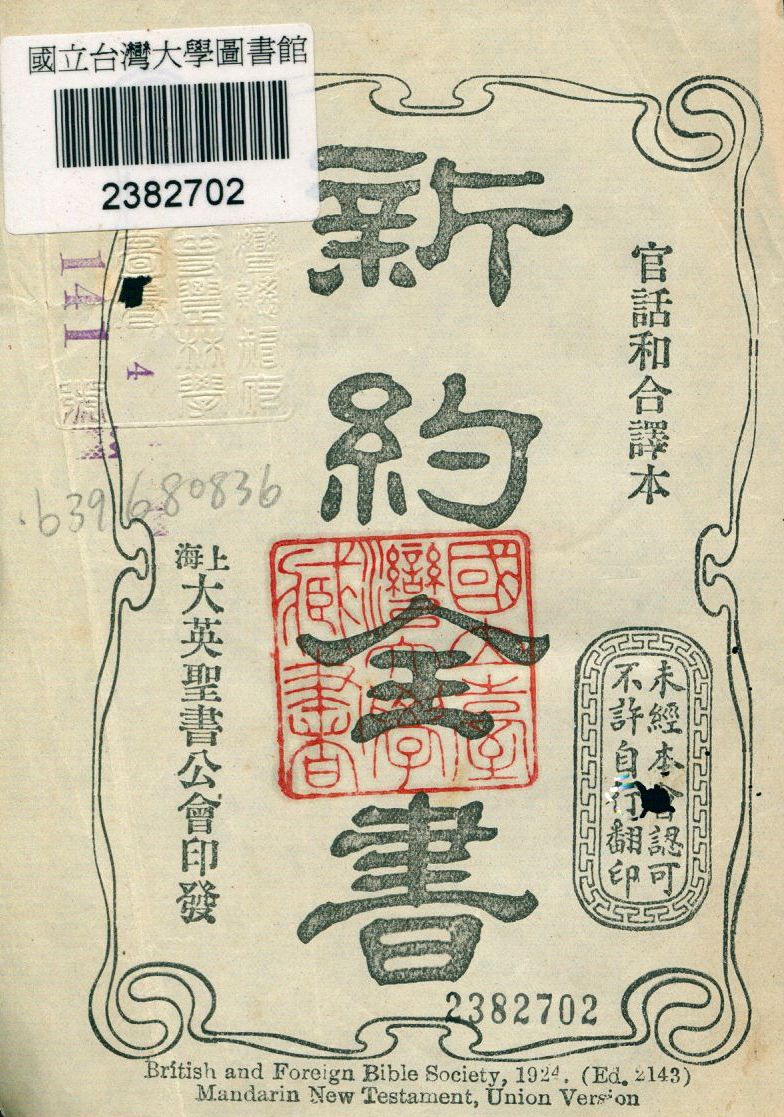 國立台灣大學圖書館
2382702
新約全書
官話和合譯本
未經本會認可
不許自行翻印
上海
大英聖書公會印發
國立臺
灣大學
藏書
141
4
.b391680836
2382702
British and Foreign Bible Society, 1924. (Ed. 2143)
Mandarin New Testament, Union Version